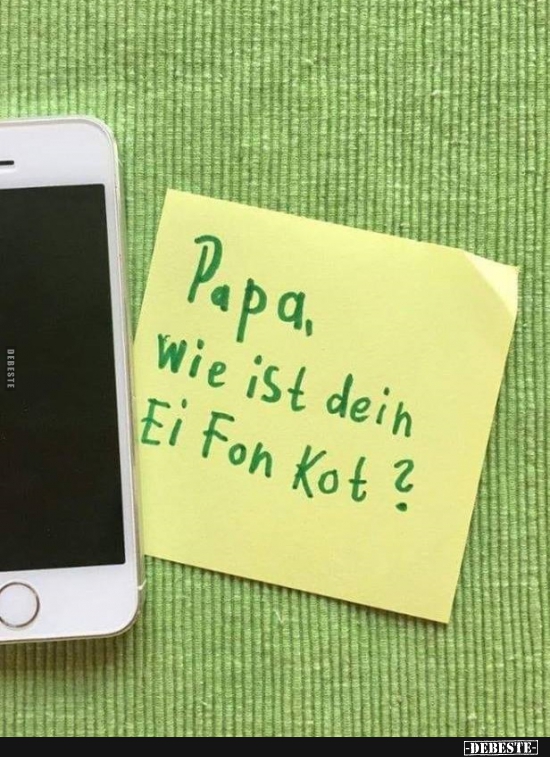 Papa,
wie ist dein
Ei Fon Kot?
DEBESTE
-DEBESTE-